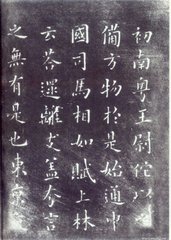 初南粤王尉佗以
備方物於是始通中
國司馬相如賦上林
云荅遝離支盖夸言
之無有是也東京